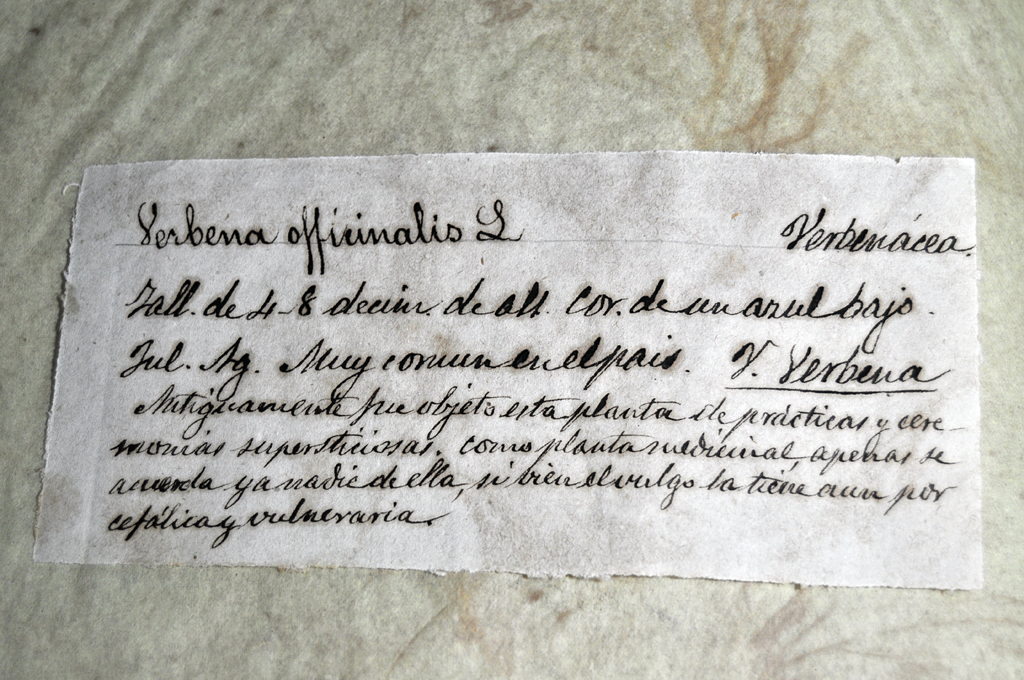 Verbena officinalis L Verbenácea.
Tall. de 4-8 decim. de alt. Cor. de un azul bajo.
Jul. Ag. Muy comun en el pais. V. Verbena
Antiguamente fue objeto esta planta de prácticas y cere-
monias supersticiosas. como planta medicinal, apenas se
acuerda ya nadie de ella, si bien el vulgo la tiene aun por
cefálica y vulneraria.